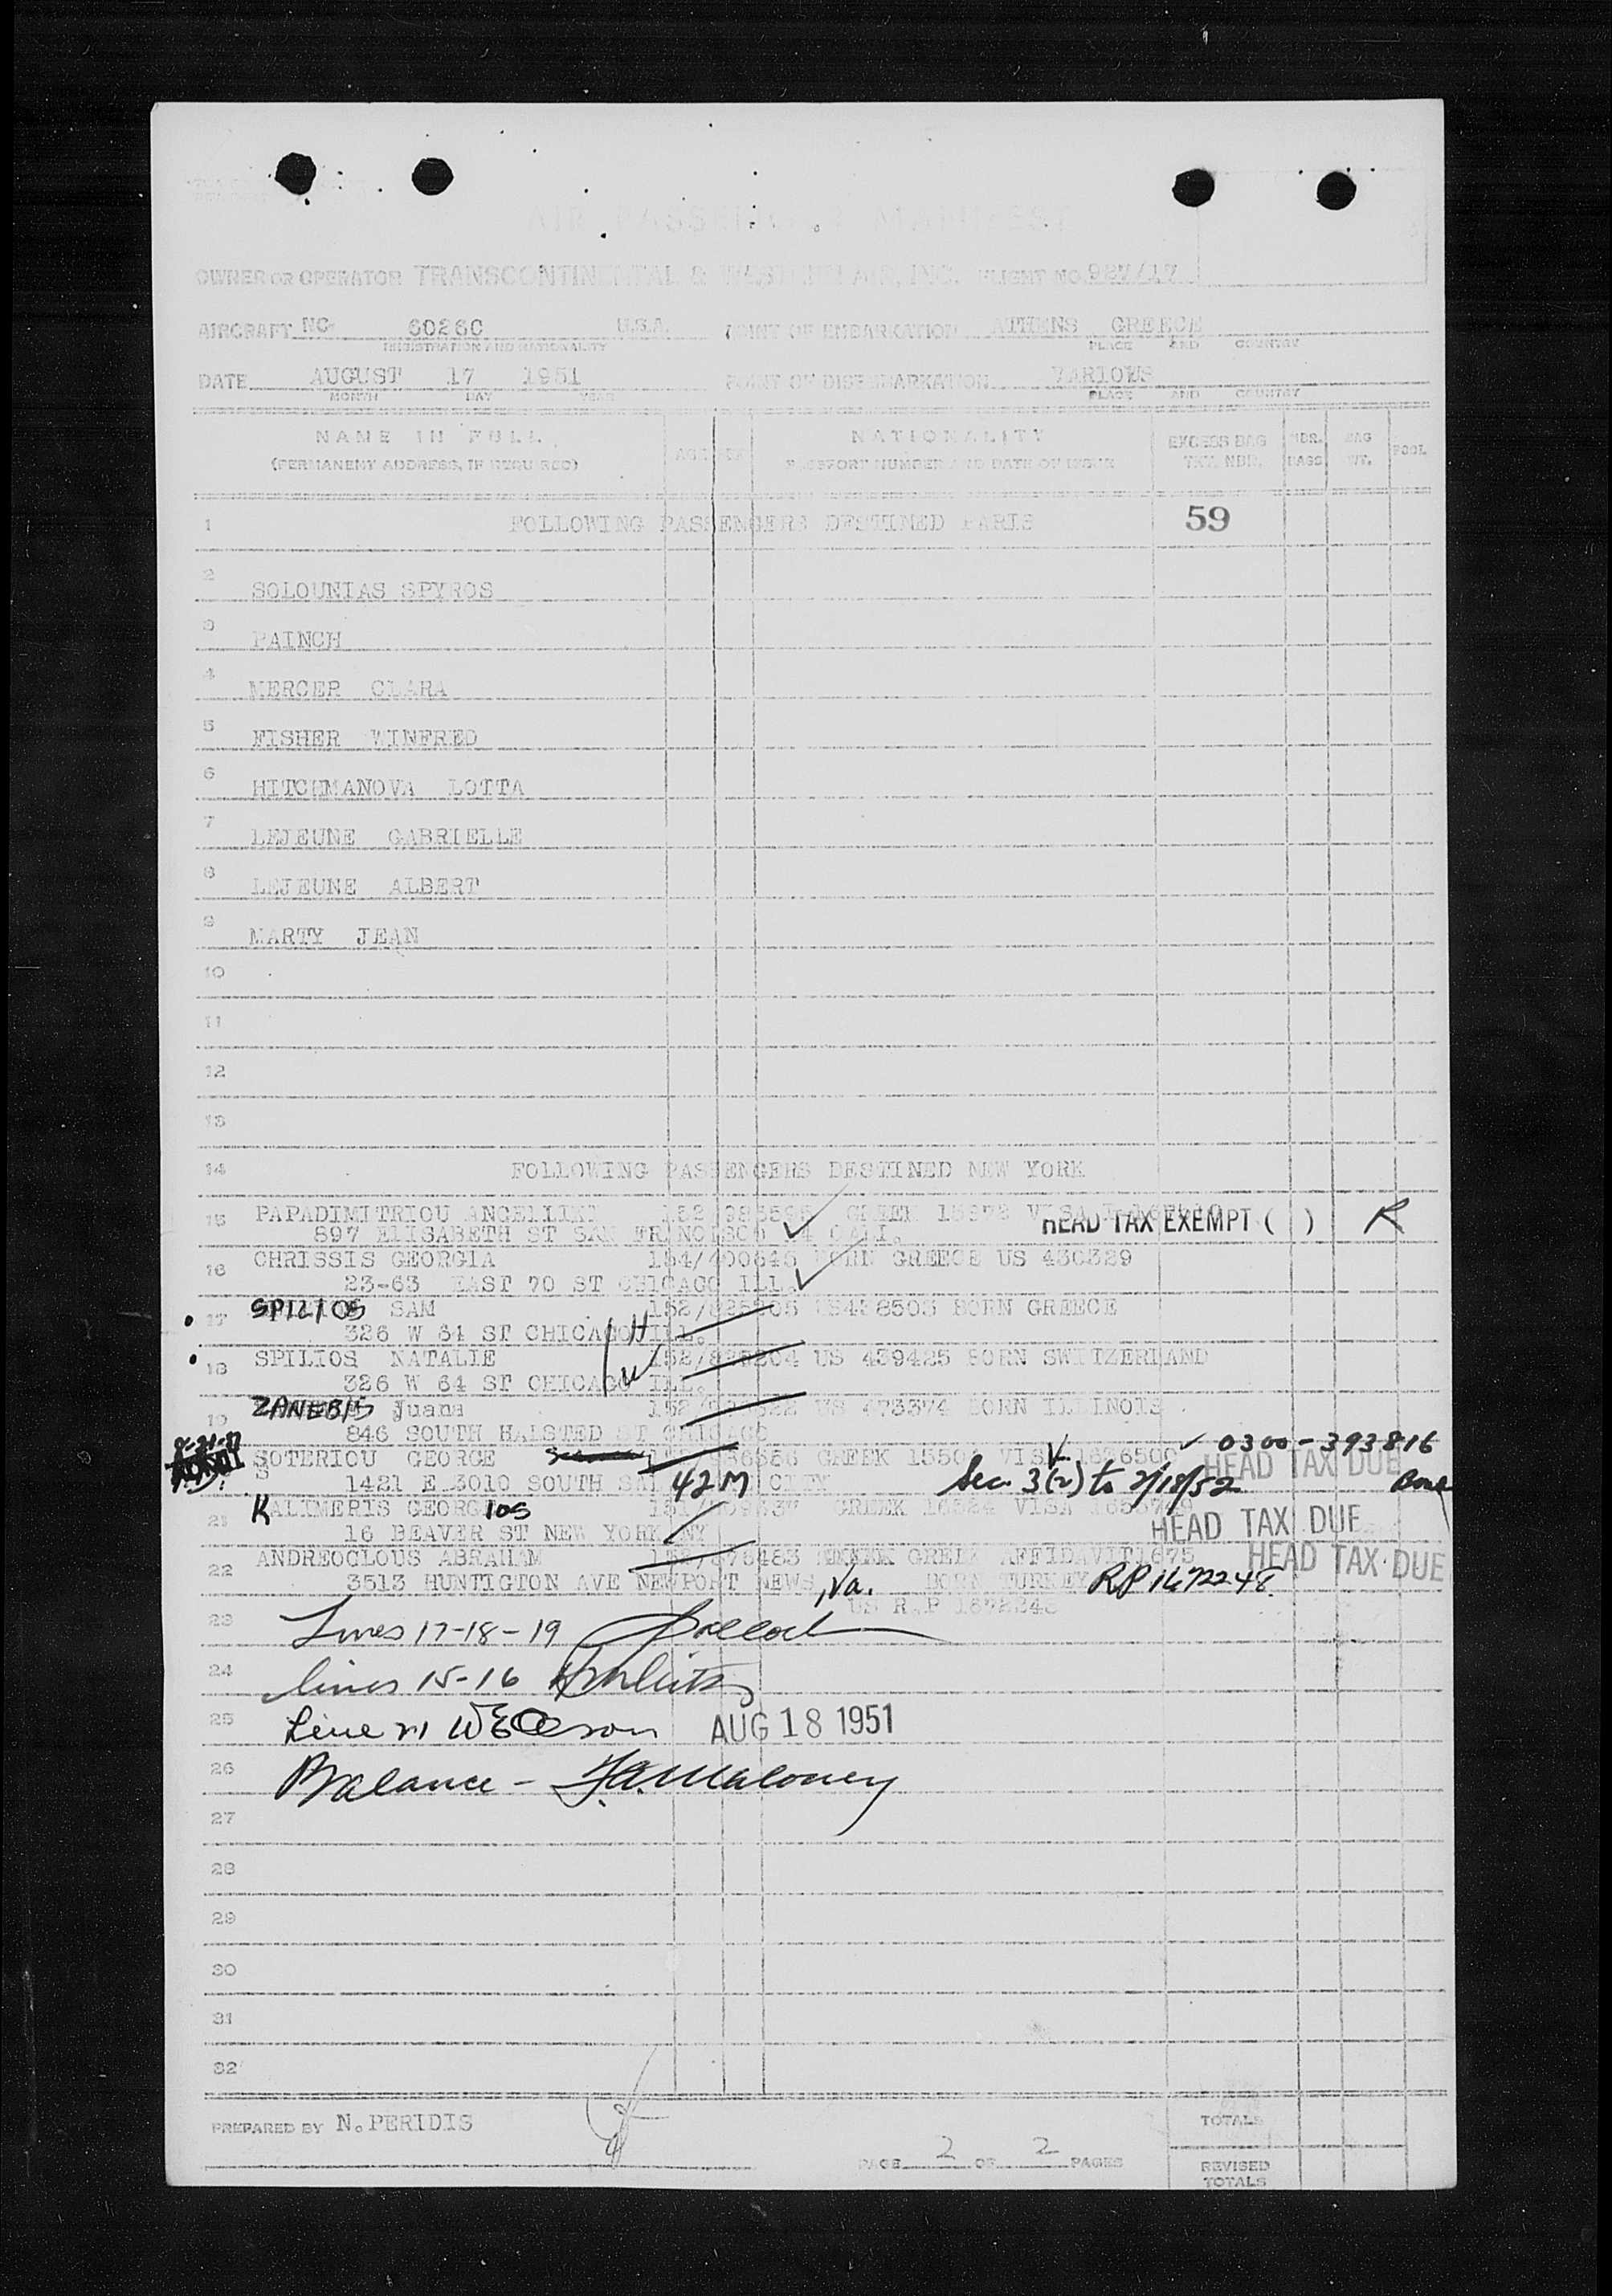 AIR PASSENGER MANIFEST
OWNER OR OPERATOR TRANSCONTINENTAL & WESTERN AIR, INC. FLIGHT NO. 927/17
AIRCRAFT NC- 60260 U.S.A. POINT OF EMBARKATION ATHENS GREECE
REGISTRATION AND NATIONALITY PLACE AND COUNTRY
DATE AUGUST 17 1951 POINT OF DISEMBARKATION VARIOUS
MONTH DAY YEAR PLACE AND COUNTRY
NAME IN FULL
(PERMANENT ADDRESS, IF REQUIRED)
AGE
NATIONALITY
PASSPORT NUMBER AND DATE OF ISSUE
EXCESS BAG TKT. NBR.
NBR. BAGS
BAG WT.
POOL
1 FOLLOWING PASSENGERS DESTINED PARIS 59
2 SOLOUNIAS SPYROS
3 PAINCH
4 MERCER CLARA
5 FISHER WINFRED
6 HITCHMANOVA LOTTA
7 LEJEUNE GABRIELLE
8 LEJEUNE ALBERT
9 MARTY JEAN
10
11
12
13
14 FOLLOWING PASSENGERS DESTINED NEW YORK
15 PAPADIMITRIOU ANGELLIKI GREEK VISA HEAD TAX EXEMPT ( ) R
897 ELISABETH ST SAN FRANCISCO CALI.
16 CHRISSIS GEORGIA 154/400645 BORN GREECE US 430329
23-63 EAST 70 ST CHICAGO ILL.
17 SPILIOS SAM BORN GREECE
326 W 64 ST CHICAGO ILL. H
18 SPILIOS NATALIE US 439425 BORN SWITZERLAND
326 W 64 ST CHICAGO ILL. W
19 ZANEBIS Juana US 473374 BORN ILLINOIS
846 SOUTH HALSTED ST CHICAGO
SOTERIOU GEORGE GREEK VISA 0300-393816
S 1421 E 3010 SOUTH CITY 42 M Sec. 3(2) to 2/18/52 HEAD TAX DUE
21 KALIMERIS GEORGIOS GREEK VISA
16 BEAVER ST NEW YORK NY HEAD TAX DUE
22 ANDREOCLOUS ABRAHAM GREEK AFFIDAVIT 1675 HEAD TAX DUE
3513 HUNTIGTON AVE NEWPORT NEWS, Va. BORN TURKEY RP 1672248
US R.P 1672248
23 Lines 17-18-19
24 lines 15-16
25 Line 21 AUG 18 1951
26 Balance - Maloney
27
28
29
30
31
32
PREPARED BY N. PERIDIS
PAGE 2 OF 2 PAGES
TOTALS
REVISED TOTALS